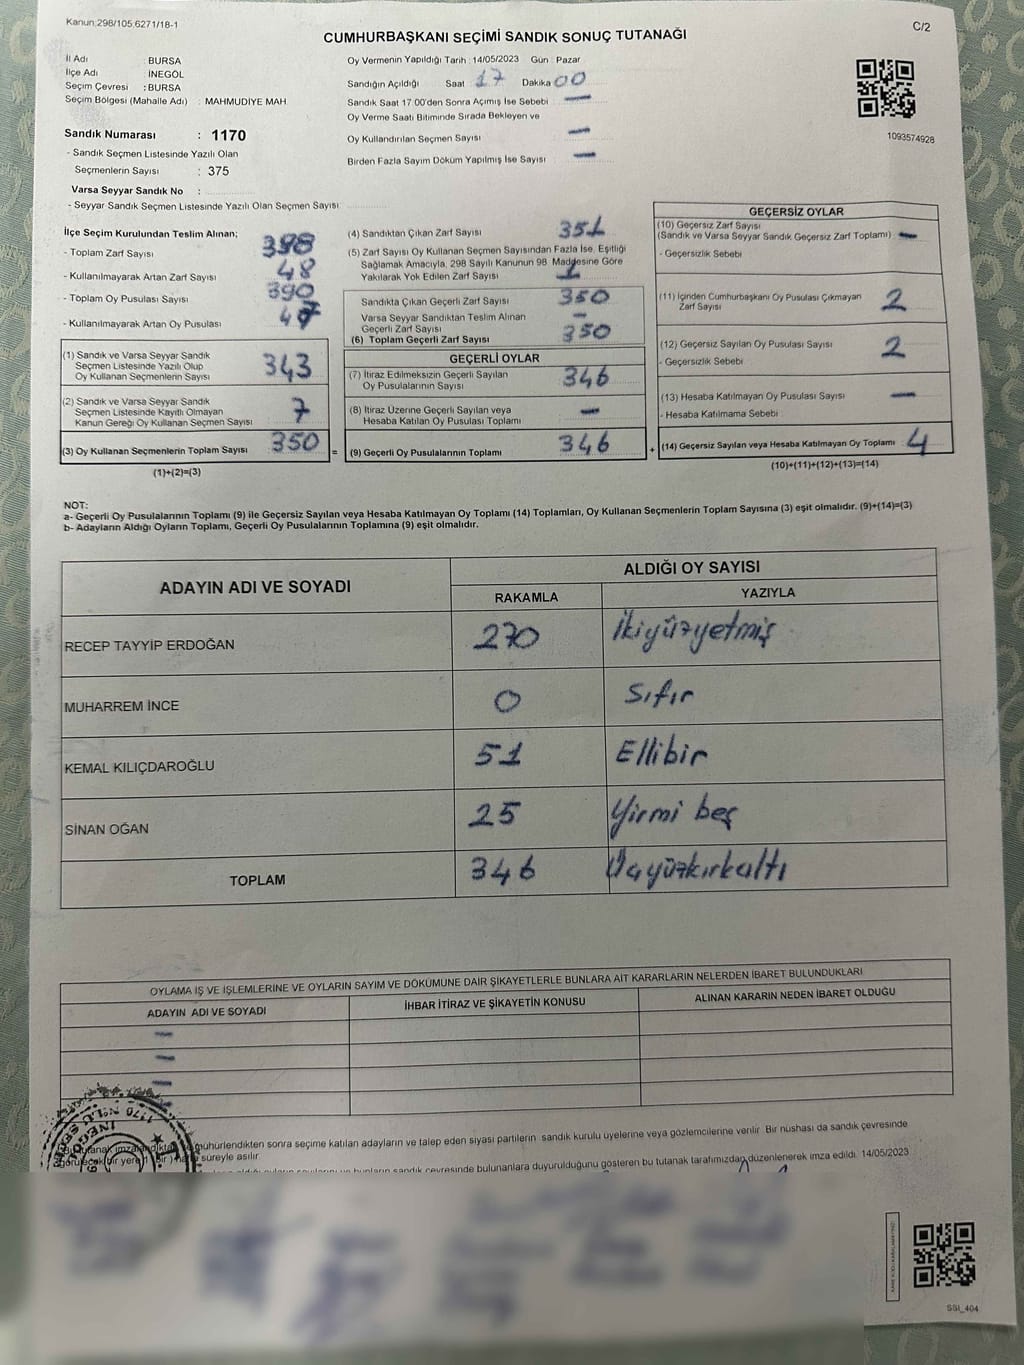 Kanun:298/105,6271/18-1
C/2
CUMHURBAŞKANI SEÇİMİ SANDIK SONUÇ TUTANAĞI
İl Adı : BURSA
İlçe Adı İNEGÖL
Seçim Çevresi : BURSA
Seçim Bölgesi (Mahalle Adı) : MAHMUDİYE MAH
Sandık Numarası : 1170
- Sandık Seçmen Listesinde Yazılı Olan
Seçmenlerin Sayısı : 375
Varsa Seyyar Sandık No :
- Seyyar Sandık Seçmen Listesinde Yazılı Olan Seçmen Sayısı
Oy Vermenin Yapıldığı Tarih : 14/05/2023 Gün : Pazar
Sandığın Açıldığı Saat 17 Dakika 00
Sandık Saat 17.00'den Sonra Açımış İse Sebebi —
Oy Verme Saati Bitiminde Sırada Bekleyen ve
Oy Kullandırılan Seçmen Sayısı —
Birden Fazla Sayım Döküm Yapılmış İse Sayısı —
1093574928
İlçe Seçim Kurulundan Teslim Alınan;
- Toplam Zarf Sayısı 398
- Kullanılmayarak Artan Zarf Sayısı 48
- Toplam Oy Pusulası Sayısı 390
- Kullanılmayarak Artan Oy Pusulası 47
(1) Sandık ve Varsa Seyyar Sandık
Seçmen Listesinde Yazılı Olup
Oy Kullanan Seçmenlerin Sayısı 343
(2) Sandık ve Varsa Seyyar Sandık
Seçmen Listesinde Kayıtlı Olmayan
Kanun Gereği Oy Kullanan Seçmen Sayısı 7
(3) Oy Kullanan Seçmenlerin Toplam Sayısı 350
(1)+(2)=(3)
(4) Sandıktan Çıkan Zarf Sayısı 351
(5) Zarf Sayısı Oy Kullanan Seçmen Sayısından Fazla İse, Eşitliği
Sağlamak Amacıyla, 298 Sayılı Kanunun 98. Maddesine Göre
Yakılarak Yok Edilen Zarf Sayısı 1
Sandıkta Çıkan Geçerli Zarf Sayısı 350
Varsa Seyyar Sandıktan Teslim Alınan
Geçerli Zarf Sayısı —
(6) Toplam Geçerli Zarf Sayısı 350
GEÇERLİ OYLAR
(7) İtiraz Edilmeksizin Geçerli Sayılan
Oy Pusulalarının Sayısı 346
(8) İtiraz Üzerine Geçerli Sayılan veya
Hesaba Katılan Oy Pusulası Toplamı —
= (9) Geçerli Oy Pusulalarının Toplamı 346
GEÇERSİZ OYLAR
(10) Geçersiz Zarf Sayısı
(Sandık ve Varsa Seyyar Sandık Geçersiz Zarf Toplamı) —
- Geçersizlik Sebebi
(11) İçinden Cumhurbaşkanı Oy Pusulası Çıkmayan
Zarf Sayısı 2
(12) Geçersiz Sayılan Oy Pusulası Sayısı 2
- Geçersizlik Sebebi
(13) Hesaba Katılmayan Oy Pusulası Sayısı —
- Hesaba Katılmama Sebebi
+ (14) Geçersiz Sayılan veya Hesaba Katılmayan Oy Toplamı 4
(10)+(11)+(12)+(13)=(14)
NOT:
a- Geçerli Oy Pusulalarının Toplamı (9) ile Geçersiz Sayılan veya Hesaba Katılmayan Oy Toplamı (14) Toplamları, Oy Kullanan Seçmenlerin Toplam Sayısına (3) eşit olmalıdır. (9)+(14)=(3)
b- Adayların Aldığı Oyların Toplamı, Geçerli Oy Pusulalarının Toplamına (9) eşit olmalıdır.
ADAYIN ADI VE SOYADI
ALDIĞI OY SAYISI
RAKAMLA YAZIYLA
RECEP TAYYİP ERDOĞAN 270 İkiyüzyetmiş
MUHARREM İNCE 0 Sıfır
KEMAL KILIÇDAROĞLU 51 Ellibir
SİNAN OĞAN 25 Yirmi beş
TOPLAM 346 Üçyüzkırkaltı
OYLAMA İŞ VE İŞLEMLERİNE VE OYLARIN SAYIM VE DÖKÜMÜNE DAİR ŞİKAYETLERLE BUNLARA AİT KARARLARIN NELERDEN İBARET BULUNDUKLARI
ADAYIN ADI VE SOYADI İHBAR İTİRAZ VE ŞİKAYETİN KONUSU ALINAN KARARIN NEDEN İBARET OLDUĞU
—
—
—
—
mühürlendikten sonra seçime katılan adayların ve talep eden siyasi partilerin sandık kurulu üyelerine veya gözlemcilerine verilir. Bir nüshası da sandık çevresinde
görülecek bir yere süreyle asılır.
bulunanlara duyurulduğunu gösteren bu tutanak tarafımızdan düzenlenerek imza edildi. 14/05/2023
SSI_404